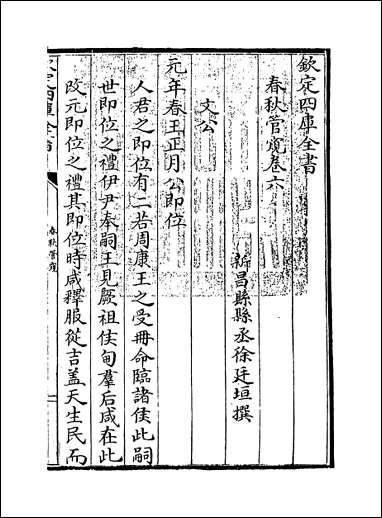 欽定四庫全書
春秋管窺卷六
新昌縣縣丞徐廷垣撰
文公
元年春王正月公即位
人君之即位有二若周康王之受冊命臨諸侯此嗣
世即位之禮伊尹奉嗣王見厥祖侯甸羣后咸在此
改元即位之禮其即位時咸釋服從吉盖天生民而
欽定四庫全書
春秋管窺